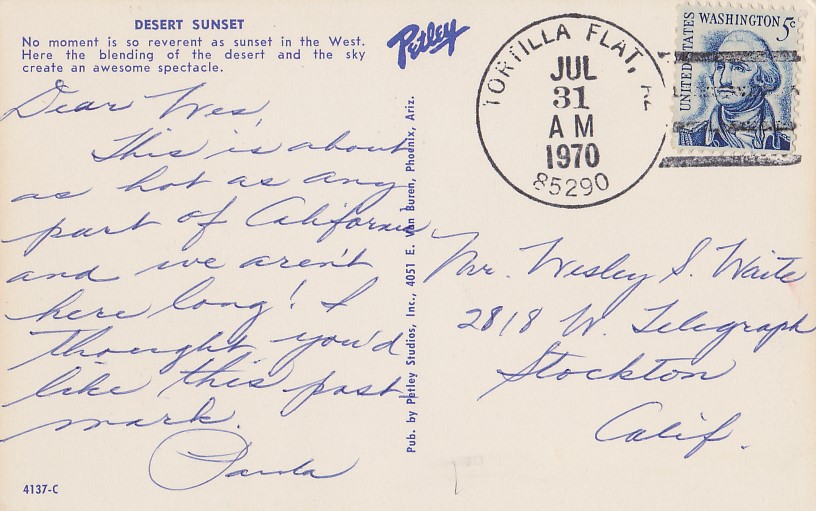 DESERT SUNSET
No moment is so reverent as sunset in the West.
Here the blending of the desert and the sky
create an awesome spectacle.
Petley
Dear Wes,
This is about
as hot as any
part of California
and we aren't
here long! I
thought you'd
like this post-
mark.
4137-C
Pub. by Petley Studios, Inc., 4051 E. Van Buren, Phoenix, Ariz.
TORTILLA FLAT,
JUL
31
AM
1970
85290
UNITED STATES
WASHINGTON 5c
Mr. Wesley S. Waite
2818 W. Telegraph
Stockton
Calif.